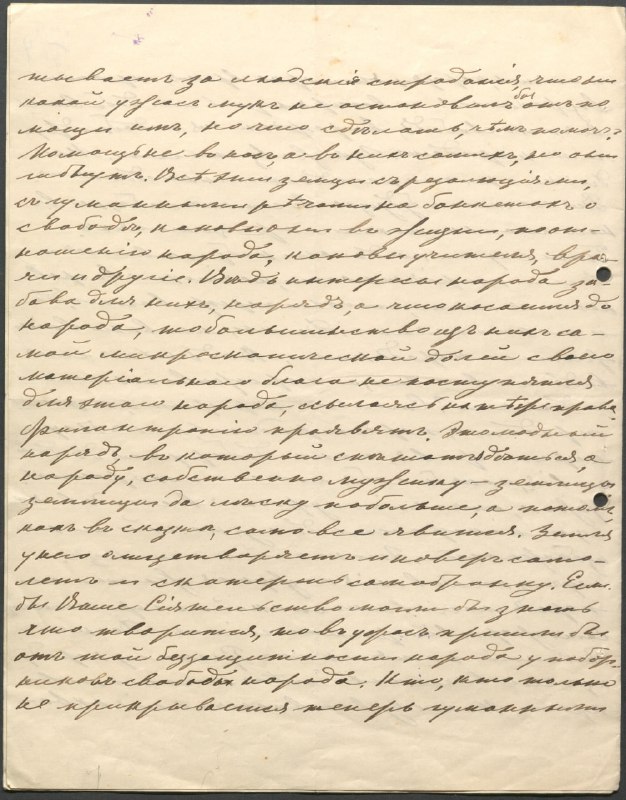 тываетъ за людскія страданія, что ни
какой ужасъ мукъ не остановилъ бы отъ по
мощи имъ, но что сдѣлать, чѣмъ помочь?
Помощь не въ насъ, а въ нихъ самихъ, но они
гибнутъ. Всѣ эти земцы съ резолюціями,
съ гуманными рѣчами на банкетахъ о
свободѣ, каковы они въ жизни, по от-
ношенію народа, каковы учителя, вра-
чи и другіе. Вѣдь интересы народа за-
бава для нихъ, нарядъ, а что касается до
народа, то большинство изъ нихъ са-
мой микроскопической долей своего
матеріальнаго блага не поступятся
для этого народа, ссылаясь на
филантропію. Это модный
нарядъ въ который спѣшатъ одѣться, а
народу, собственно мужику – землицы
землицы да лѣску побольше, а потомъ,
какъ въ сказкѣ, само все явится. Земля
у него олицетворяетъ и коверъ само-
летъ и скатерть самобранку. Если
бы Ваше Сіятельство могли бы знать
что творится, то въ ужасъ пришли бы
отъ той беззащитности народа у побор-
никовъ свободы народа. Кто, кто только
не прикрывается теперь гуманными